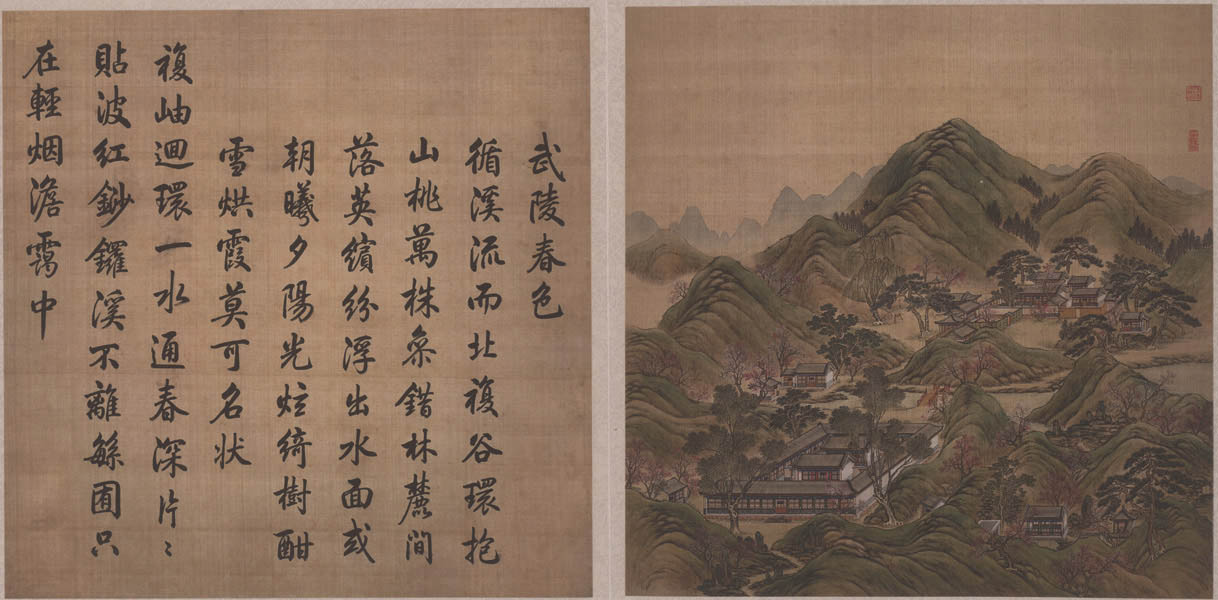 武陵春色
循溪流而北複谷環抱
山桃萬株叅錯林麓間
落英繽紛浮出水面或
朝曦夕陽光炫綺樹酣
雪烘霞莫可名状
複岫逥環一水通春深片〻
貼波紅鈔鑼溪不離繇囿只
在輕烟澹靄中